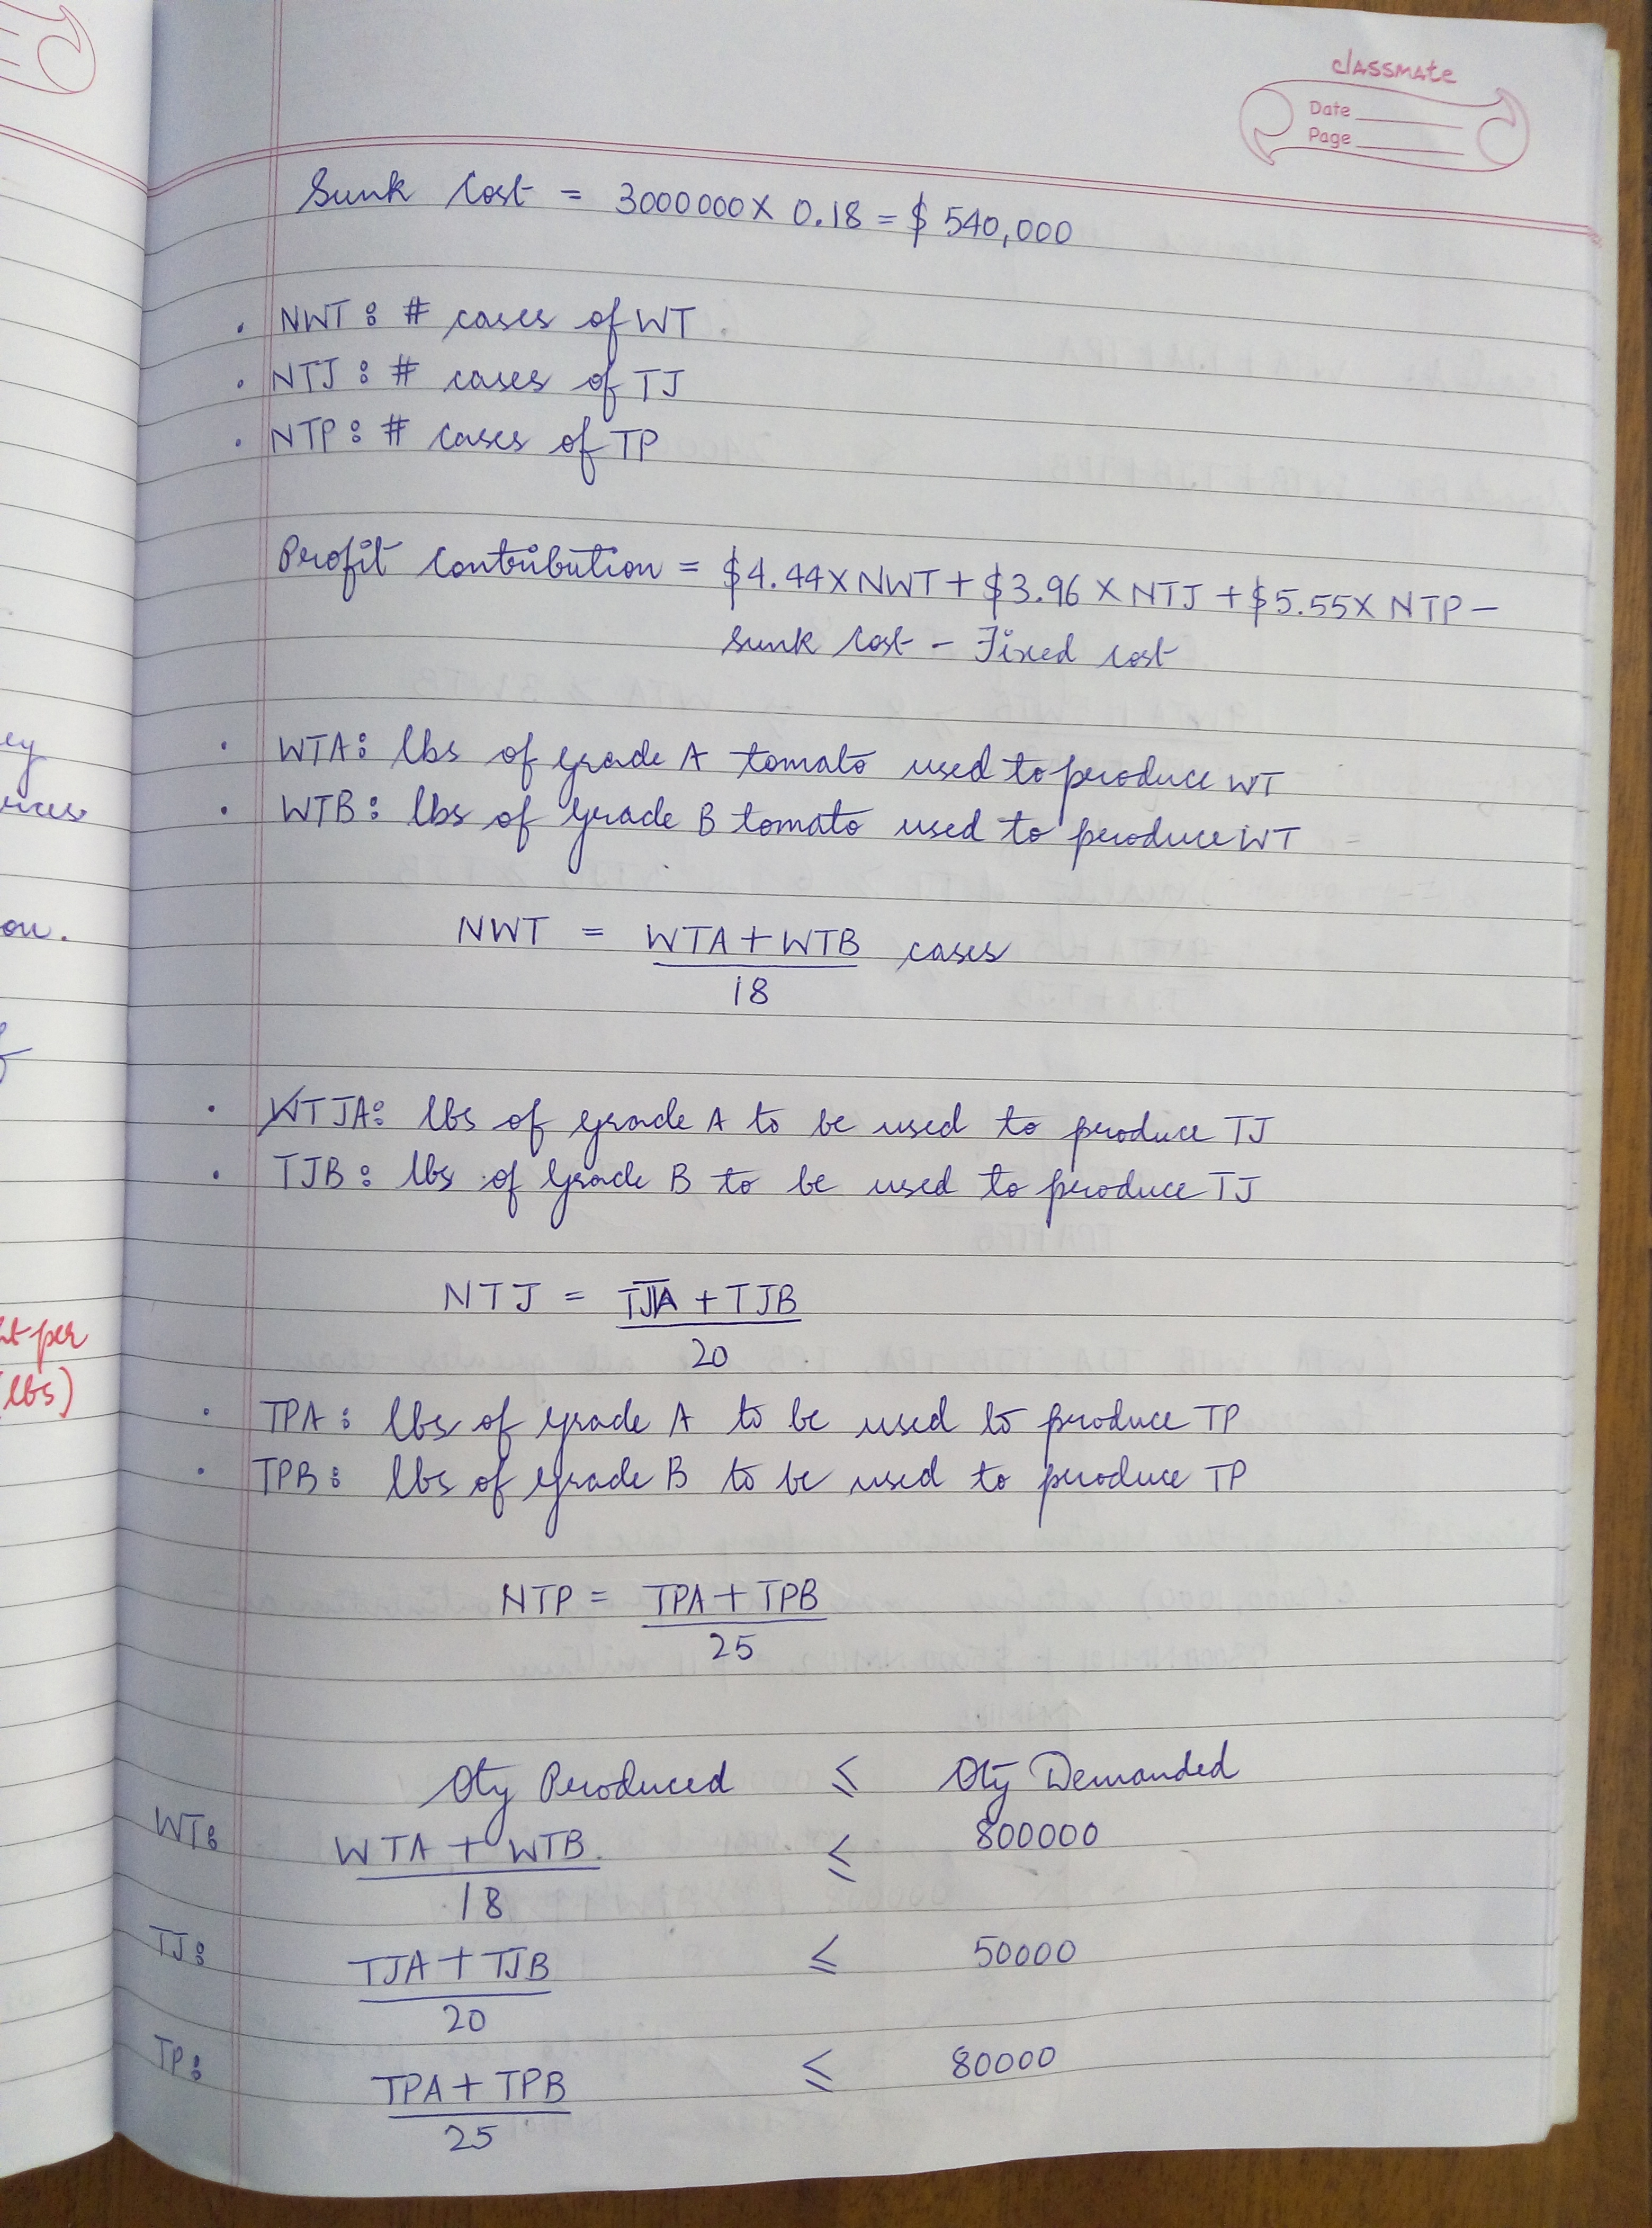 classmate
Date
Page
Sunk Cost = 3000000 X 0.18 = $ 540,000
• NWT : # cases of WT
• NTJ : # cases of TJ
• NTP : # cases of TP
Profit Contribution = $4.44 X NWT + $3.96 X NTJ + $5.55 X NTP –
Sunk Cost – Fixed cost
• WTA : lbs of grade A tomato used to produce WT
• WTB : lbs of grade B tomato used to produce WT
NWT = WTA + WTB cases
18
• TJA : lbs of grade A to be used to produce TJ
• TJB : lbs of grade B to be used to produce TJ
NTJ = TJA + TJB
20
• TPA : lbs of grade A to be used to produce TP
• TPB : lbs of grade B to be used to produce TP
NTP = TPA + TPB
25
Qty Produced ≤ Qty Demanded
WT: WTA + WTB ≤ 800000
18
TJ: TJA + TJB ≤ 50000
20
TP: TPA + TPB ≤ 80000
25
on.
(lbs)